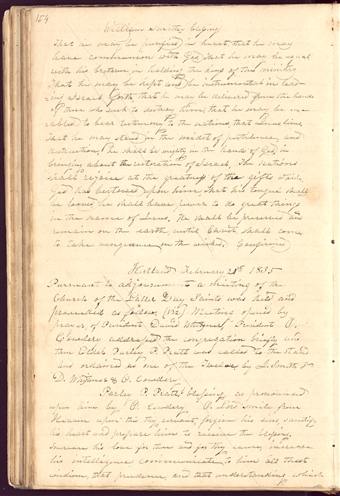 154
William Smith's blessing
That he may be purified in heart, that he may
have communion with God, that he may be equal
with his brethren in holding the keys of this ministry
That he may be kept and be instrumental in lead-
ing Israel forth, that he may be delivered from the hands
of those who seek to destroy him; that he may be en-
abled to bear testimony to the nations that Jesus lives
That he may stand in the midst of pestilence, and
destruction, he shall be mighty in the hands of God, in
bringing about the restoration of Israel, The nations
shall rejoice at the greatness of the gifts which
God has bestowed upon him, that his tongue shall
be loosed, he shall have power to do great things
in the name of Jesus. He shall be preserved and
remain on the earth until Christ shall come
to take vengeance on the wicked. Confirmed
Kirtland February 21st 1835
Pursuant to adjournment a meeting of the
Church of the Latter Day Saints was held and
proceeded as follows, (Viz) Meeting opened by
prayer, of President David Whitmer, President O.
Cowdery addressed the congregation briefly and
then Elder Parley P. Pratt was called to the stand
and ordained as one of the Twelve by J. Smith Jr
D. Whitmer & O. Cowdery
Parley P. Pratt's blessing, as pronounced
upon him by O. Cowdery O. Lord smile from
Heaven upon this thy servant, forgive his sins, sanctify
his heart and prepare him to receive the blessing,
Increase his love for thee and for thy cause, increase
his intelligence communicate to him all that
wisdom, that prudence, and that understanding which